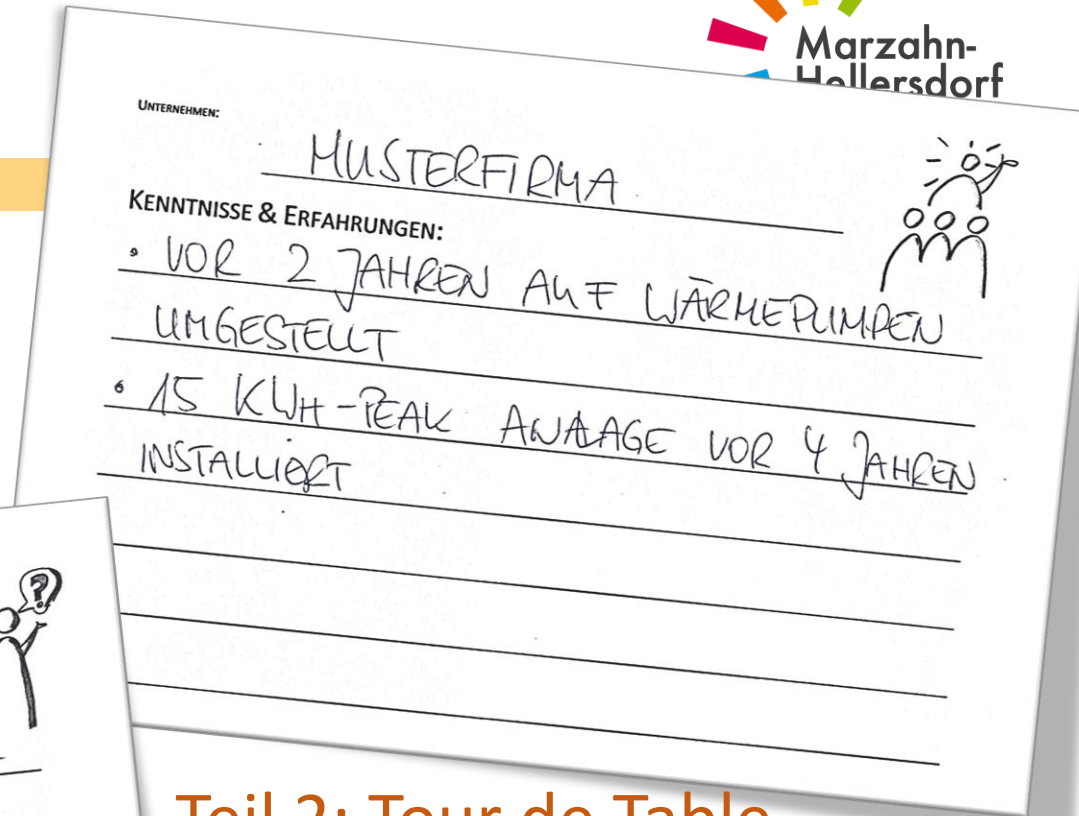 Marzahn-
Hellersdorf
UNTERNEHMEN:
MUSTERFIRMA
KENNTNISSE & ERFAHRUNGEN:
• VOR 2 JAHREN AUF WÄRMEPUMPEN
UMGESTELLT
• 15 KWH-PEAK ANLAGE VOR 4 JAHREN
INSTALLIERT
?
Teil 2: Tour de Table